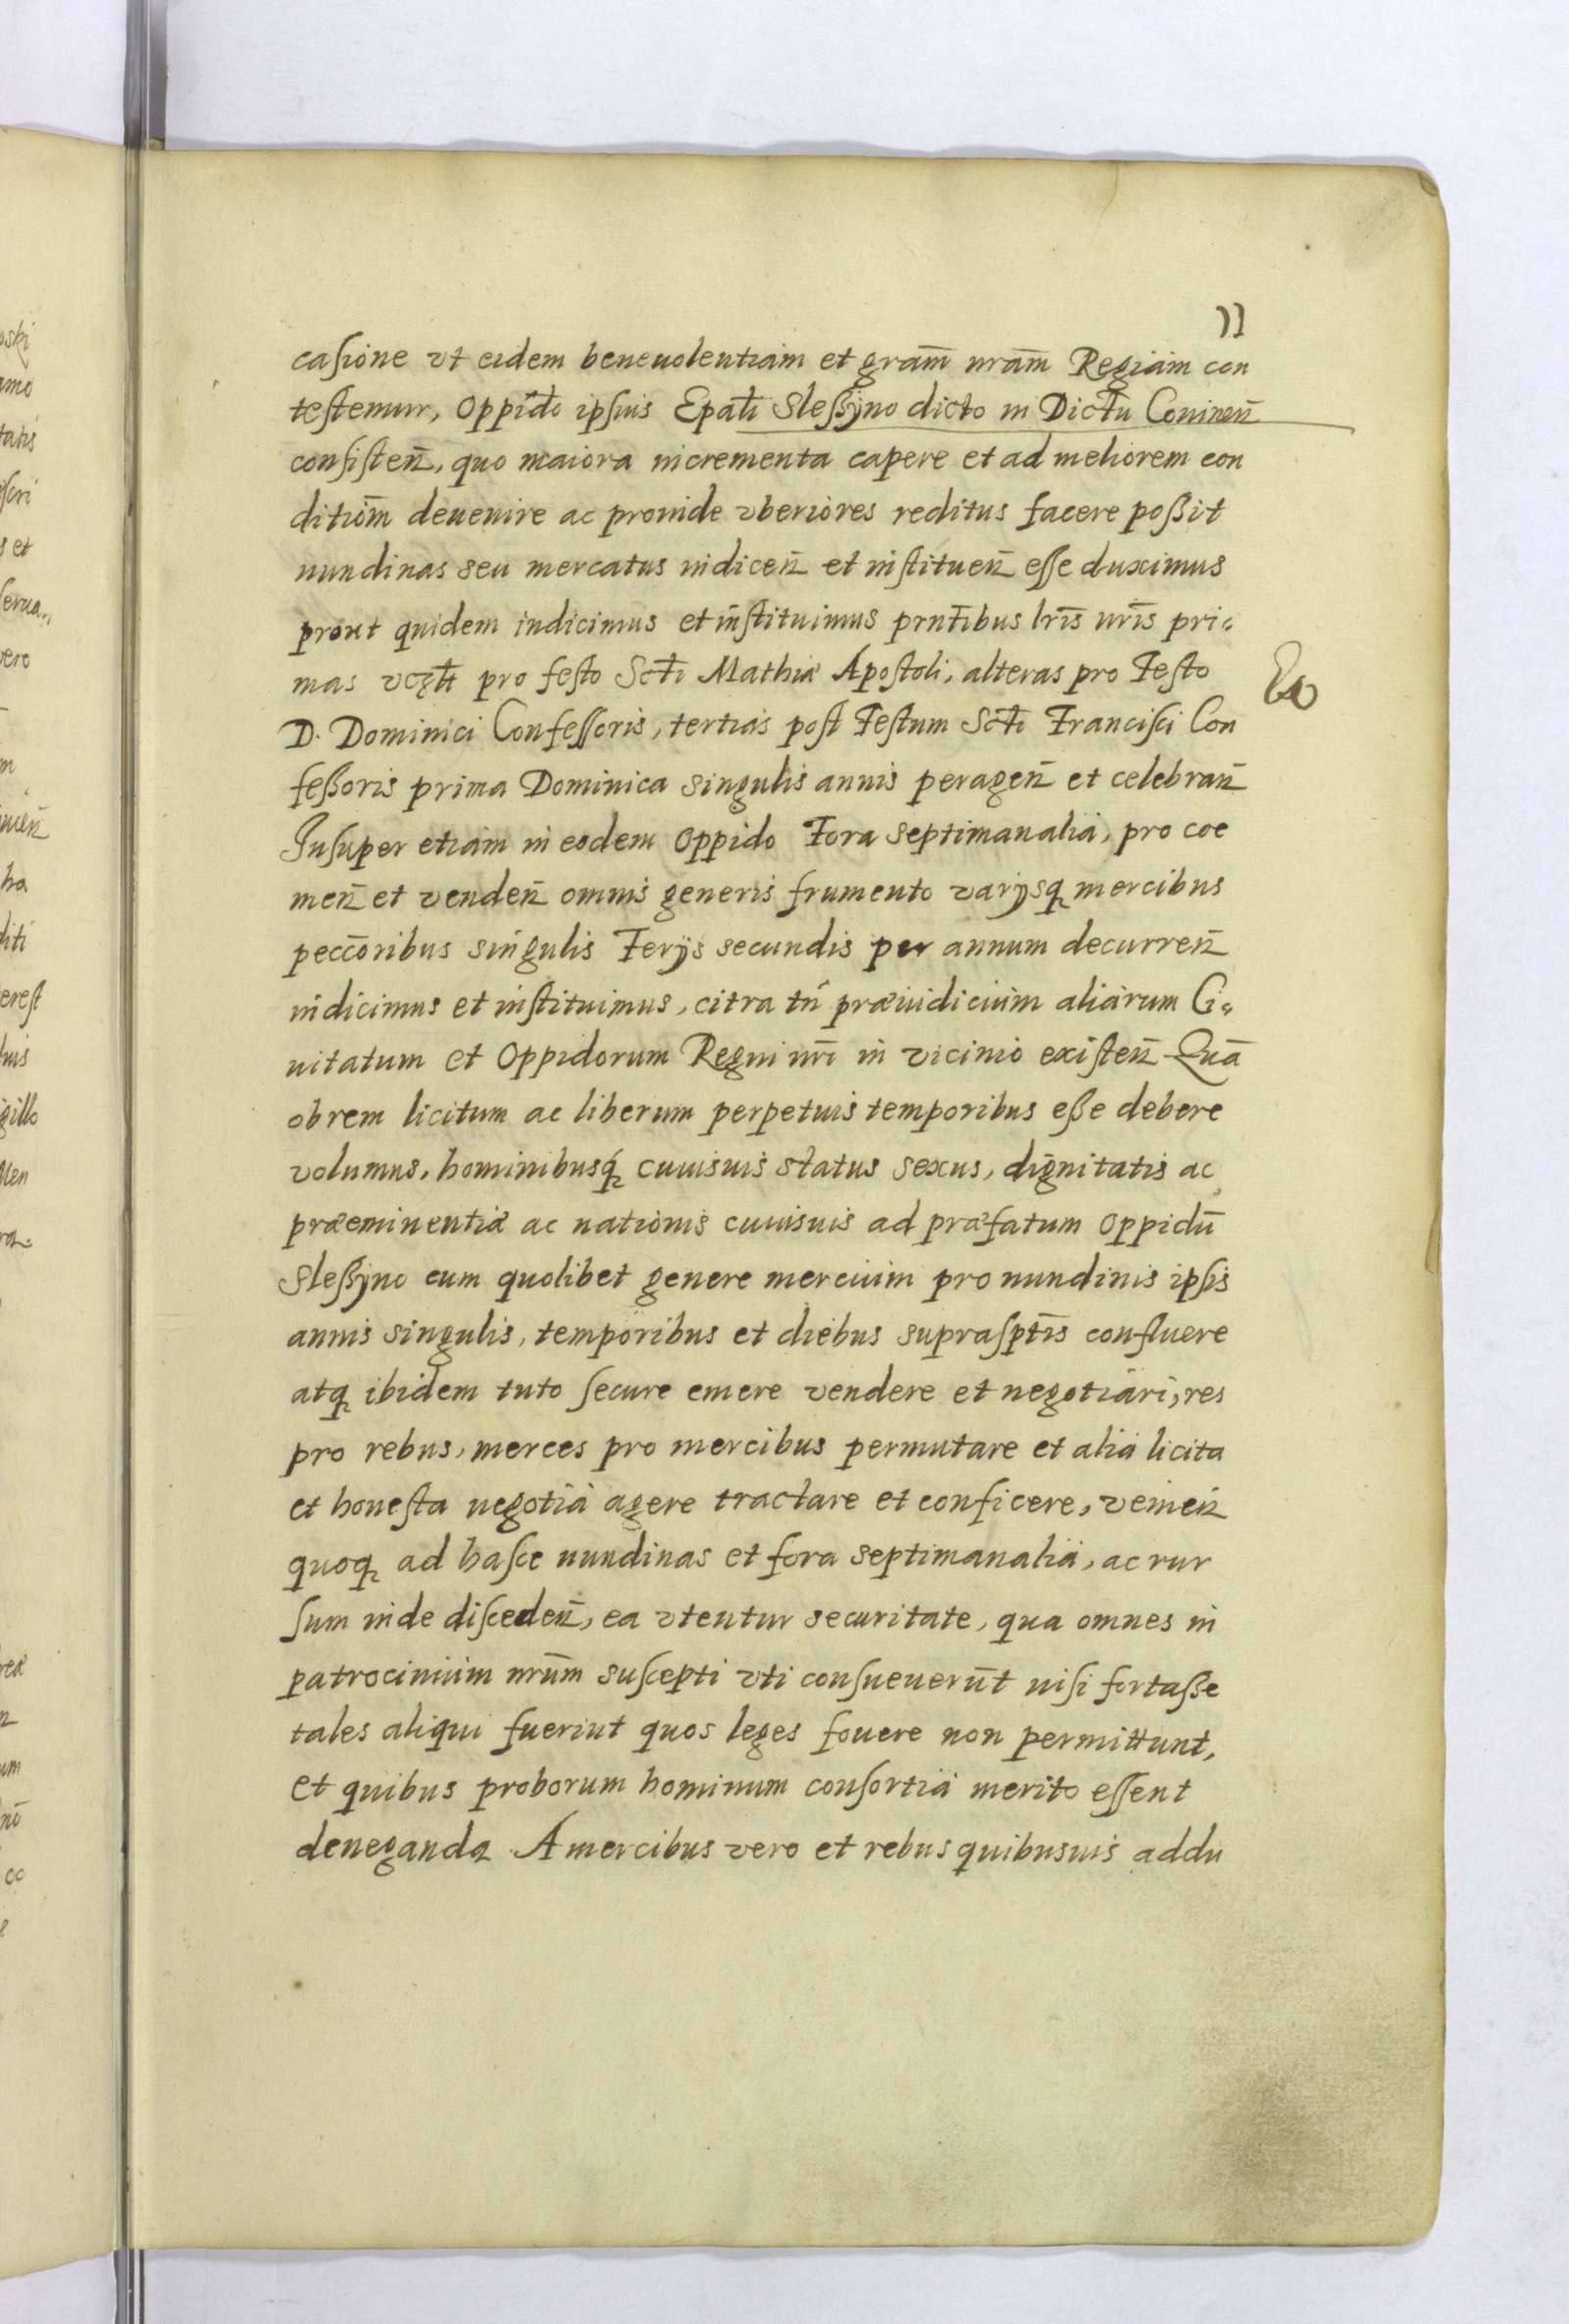 11
casione vt eidem beneuolentiam et gram̄ nram̄ Regiam con
testemur, Oppido ipsius Epali Sleßÿno dicto in Dictu Coninen̄
consisten̄, quo maiora incrementa capere et ad meliorem con
ditiom̄ deuenire ac prouide vberiores reditus facere poßit
nundinas seu mercatus indicen̄ et instituen̄ esse duximus
prout quidem indicimus et instituimus prntibus̄ lris̄ nris̄ pri-
mas vcęlt pro festo Scti Mathiæ Apostoli, alteras pro Festo
D. Dominici Confessoris, tertias post Festum Scti Francisci Con
feßoris prima Dominica singulis annis peragen̄ et celebran̄
Insuper etiam in eodem Oppido Fora septimanalia, pro coe
men̄ et venden̄ omnis generis frumento varÿsq mercibus
peccoribus singulis Ferÿs secundis per annum decurren̄
indicimus et instituimus, citra tn̄ præiudicium aliarum Ci-
uitatum et Oppidorum Regni nri̅ in vicinio existen̄ Quā
obrem licitum ac liberum perpetuis temporibus eße debere
volumus, hominibusq́ cuiusuis status sexus, dignitatis ac
præeminentiæ ac nationis cuiusuis ad præfatum Oppidū
Sleßÿno cum quolibet genere mercium pro nundinis ipsis
annis singulis, temporibus et diebus suprasptis̄ confluere
atq ibidem tuto secure emere vendere et negotiari, res
pro rebus, merces pro mercibus permutare et alia licita
et honesta negotia agere tractare et conficere, venien̄
quoq ad hasce nundinas et fora septimanalia, ac rur
sum inde disceden̄, ea vtentur securitate, qua omnes in
patrocinium nrum̄ suscepti vti consueuerūt nisi fortaße
tales aliqui fuerint quos leges fouere non permittunt,
et quibus proborum hominum consortia merito essent
deneganda. A mercibus vero et rebus quibusuis addu